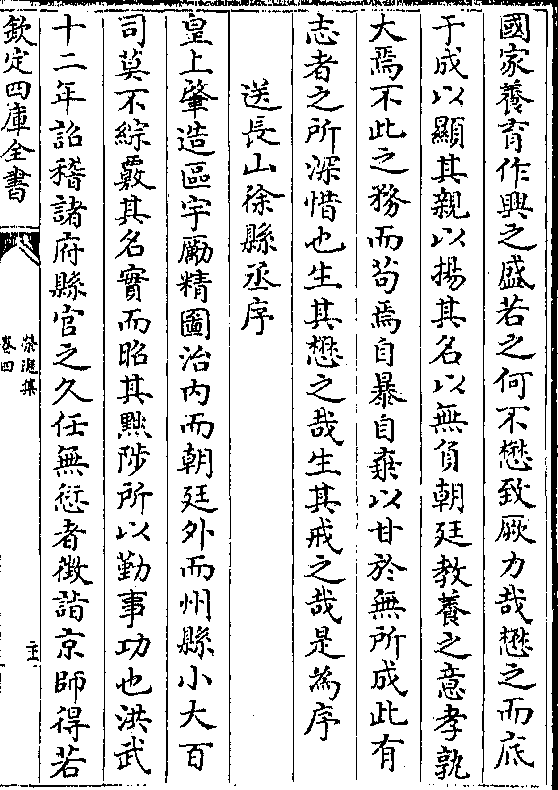 國家養育作興之盛若之何不懋致厥力哉懋之而底
于成以顯其親以揚其名以無負朝廷教養之意孝孰
大焉不此之務而苟焉自暴自棄以甘於無所成此有
志者之所深惜也生其懋之哉生其戒之哉是為序
送長山徐縣丞序
皇上肇造區宇勵精圖治内而朝廷外而州縣小大百
司莫不綜覈其名實而昭其黜陟所以勤事功也洪武
十二年詔稽諸府縣官之久任無愆者徴詣京師得若
欽定四庫全書
卷四